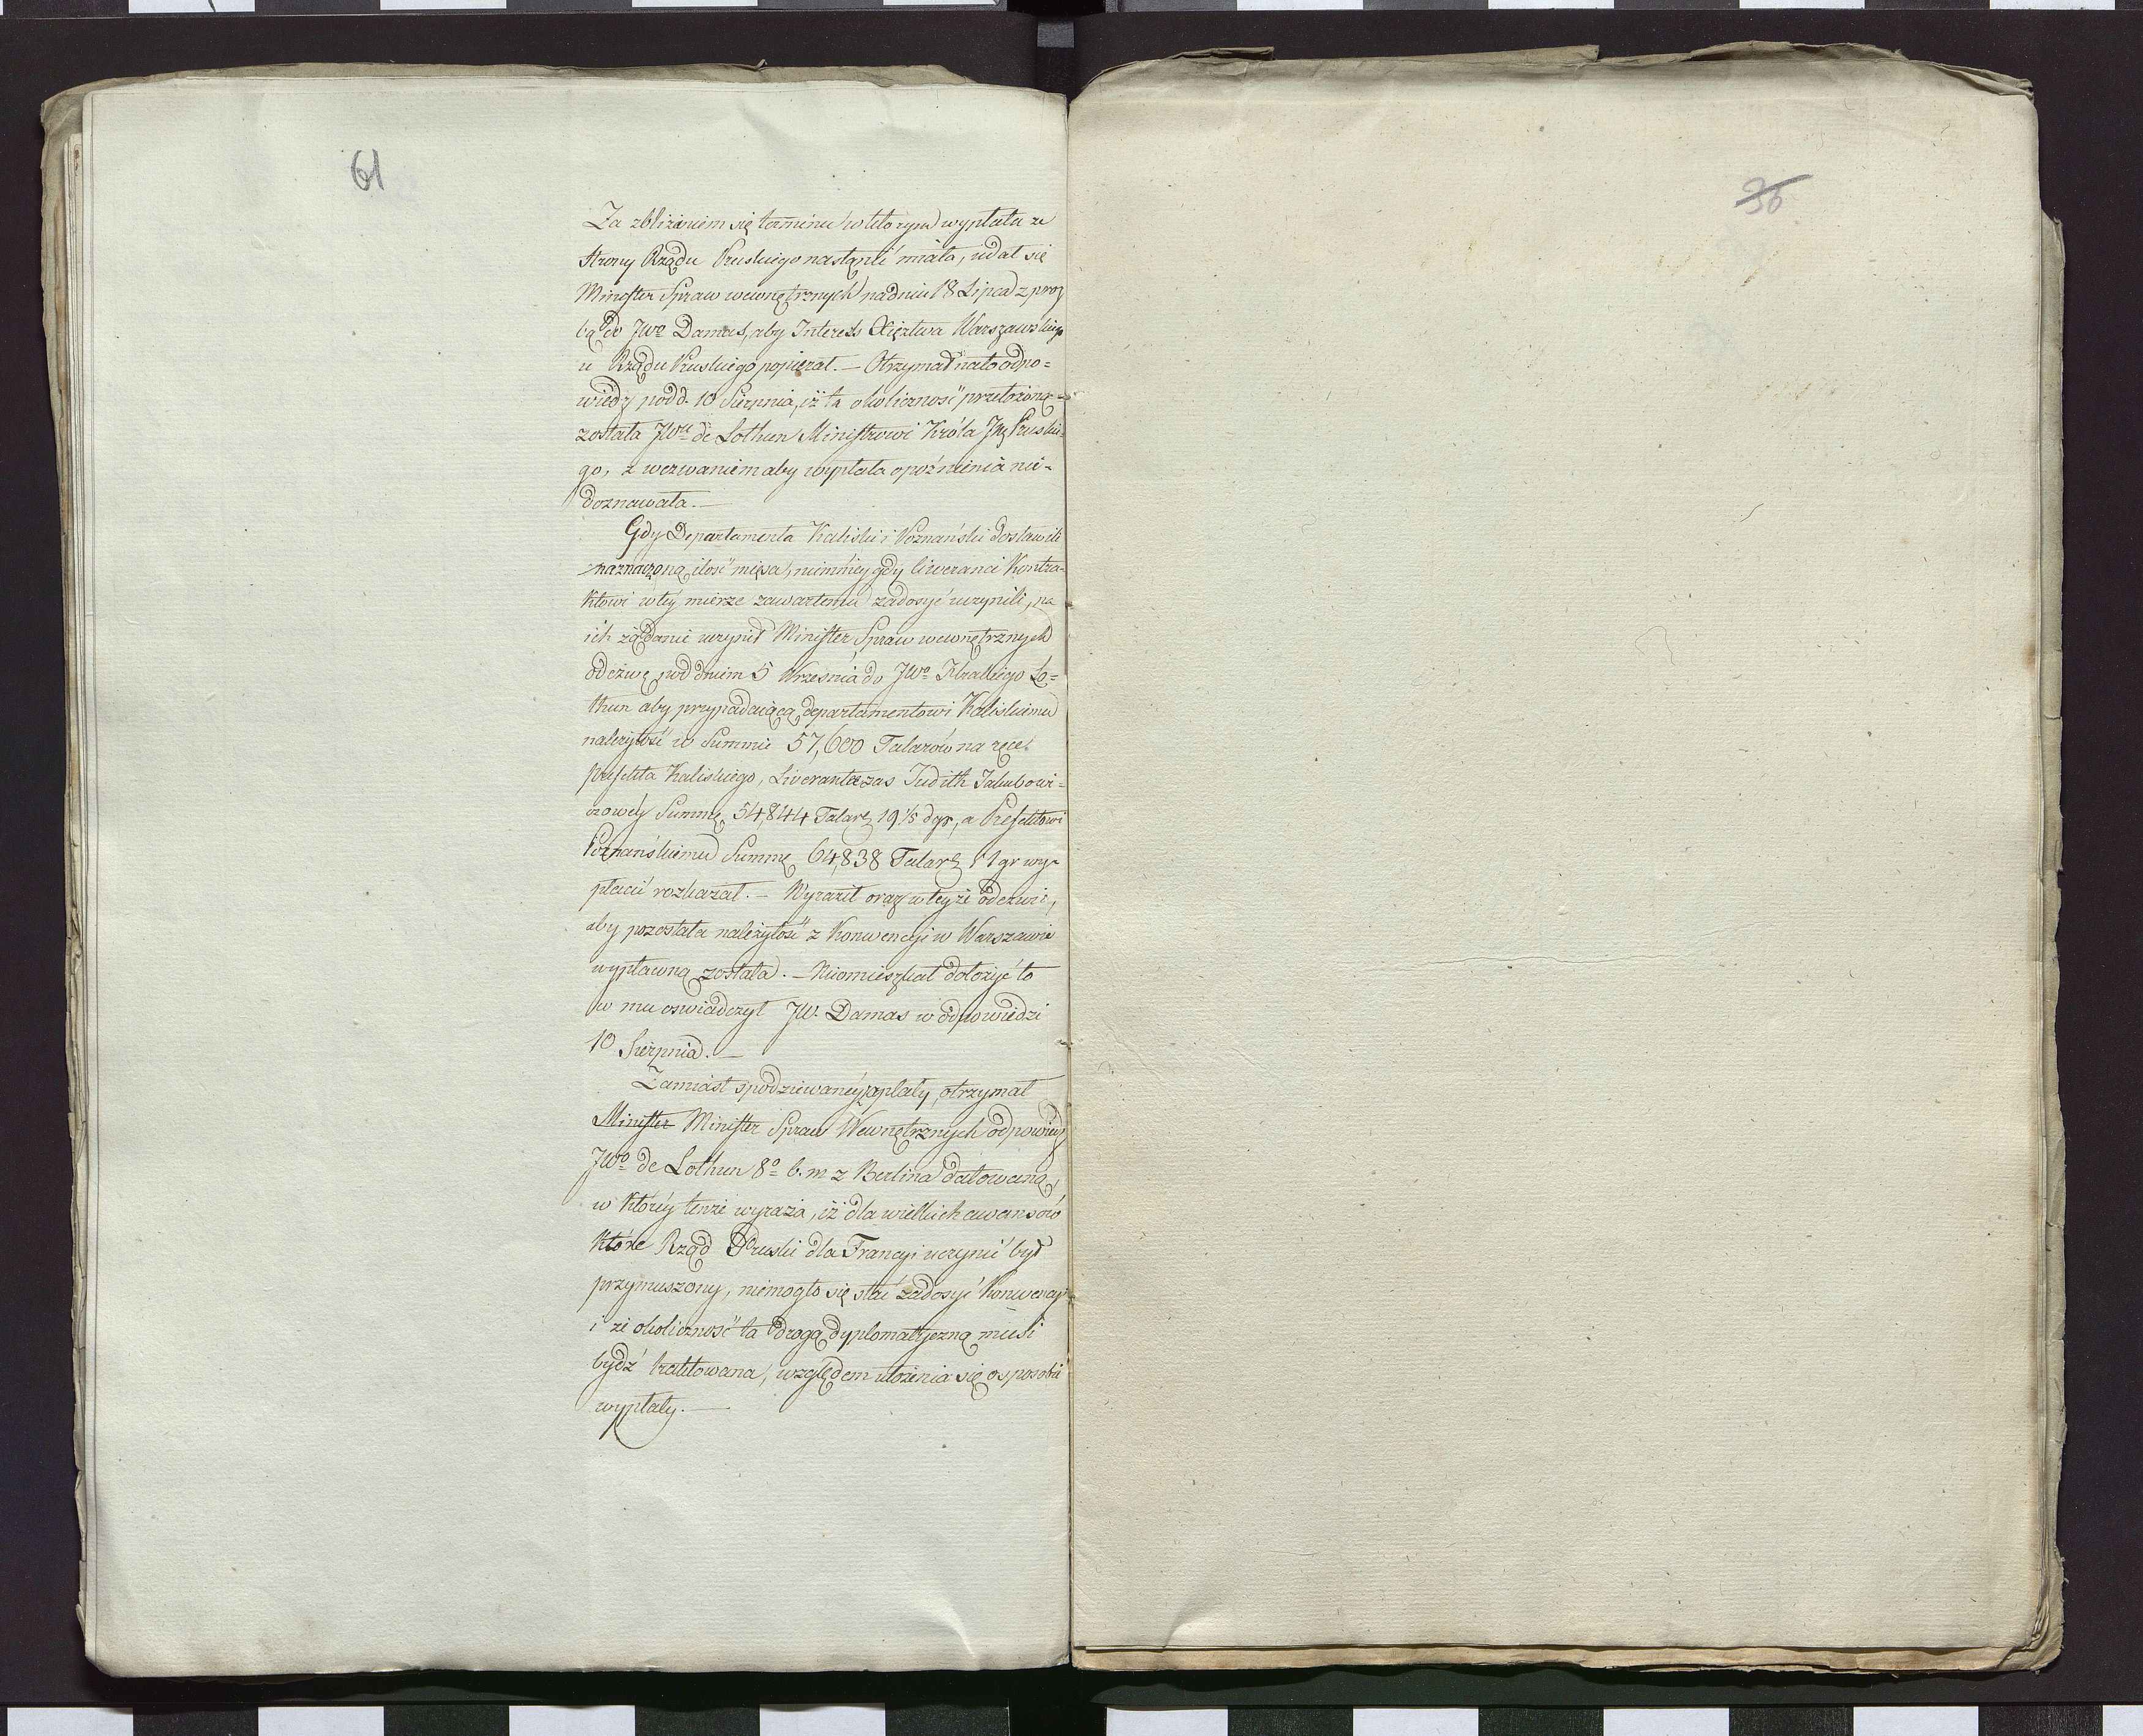 61
Za zbliżeniem się terminu w którym wypłata ze
strony Rządu Pruskiego nastąpić miała, udał się
Minister Spraw wewnętrznych na dniu 18 Lipca z proź
bą do JWo Damas, aby Interess Xięztwa Warszawskiego
u Rządu Pruskiego popierał. — Otrzymał na to odpo=
wiedź pod d. 10 Sierpnia, iż ta okoliczność przełożoną
została JWu de Lothun Ministrowi Króla Pruskie=
go, z wezwaniem aby wypłata opoźnienia nie=
doznawała. —
Gdy Departamenta Kaliski i Poznański dostawili
naznaczoną ilość mięsa, niemniey gdy liweranci Kontra=
ktowi w téy mierze zawartemu zadosyć uczynili, na
ich żądanie uczynił Minister Spraw wewnętrznych
odezwę pod dniem 5 Września do JWo Hrabiego Lo=
thun aby przypadaiącą departamentowi Kaliskiemu
należytość w Summie 57,600 Talarów na ręce
prefekta Kaliskiego, Liverantce zas Judith Jakubowi=
czowéy Summę 54,844 Talar 19 1/5 dgr, a Prefektowi
Poznańskiemu Summę 64,838 Talar 11 gr wy=
płacić rozkazał. — Wyraził oraz w teyże odezwie,
aby pozostała należytość z Konwencyi w Warszawie
wypłaconą została. — Nieomieszkał dołożyć to
w mu oswiadczył JW. Damas w odpowiedzi
10 Sierpnia. —
Zamiast spodziewanéy zapłaty, otrzymał
Minister Minister Spraw Wewnętrznych odpowiedź
JWo de Lothun 8o b. m z Berlina datowaną,
w któréy tenże wyraża, iż dla wielkich awansów
które Rząd Pruski dla Francyi uczynić był
przymuszony, niemogło się stać zadosyć Konwencyi
i że okoliczność ta drogą dyplomatyczną musi
bydź traktowana, względem ułożenia się o sposobie
wypłaty. —
36